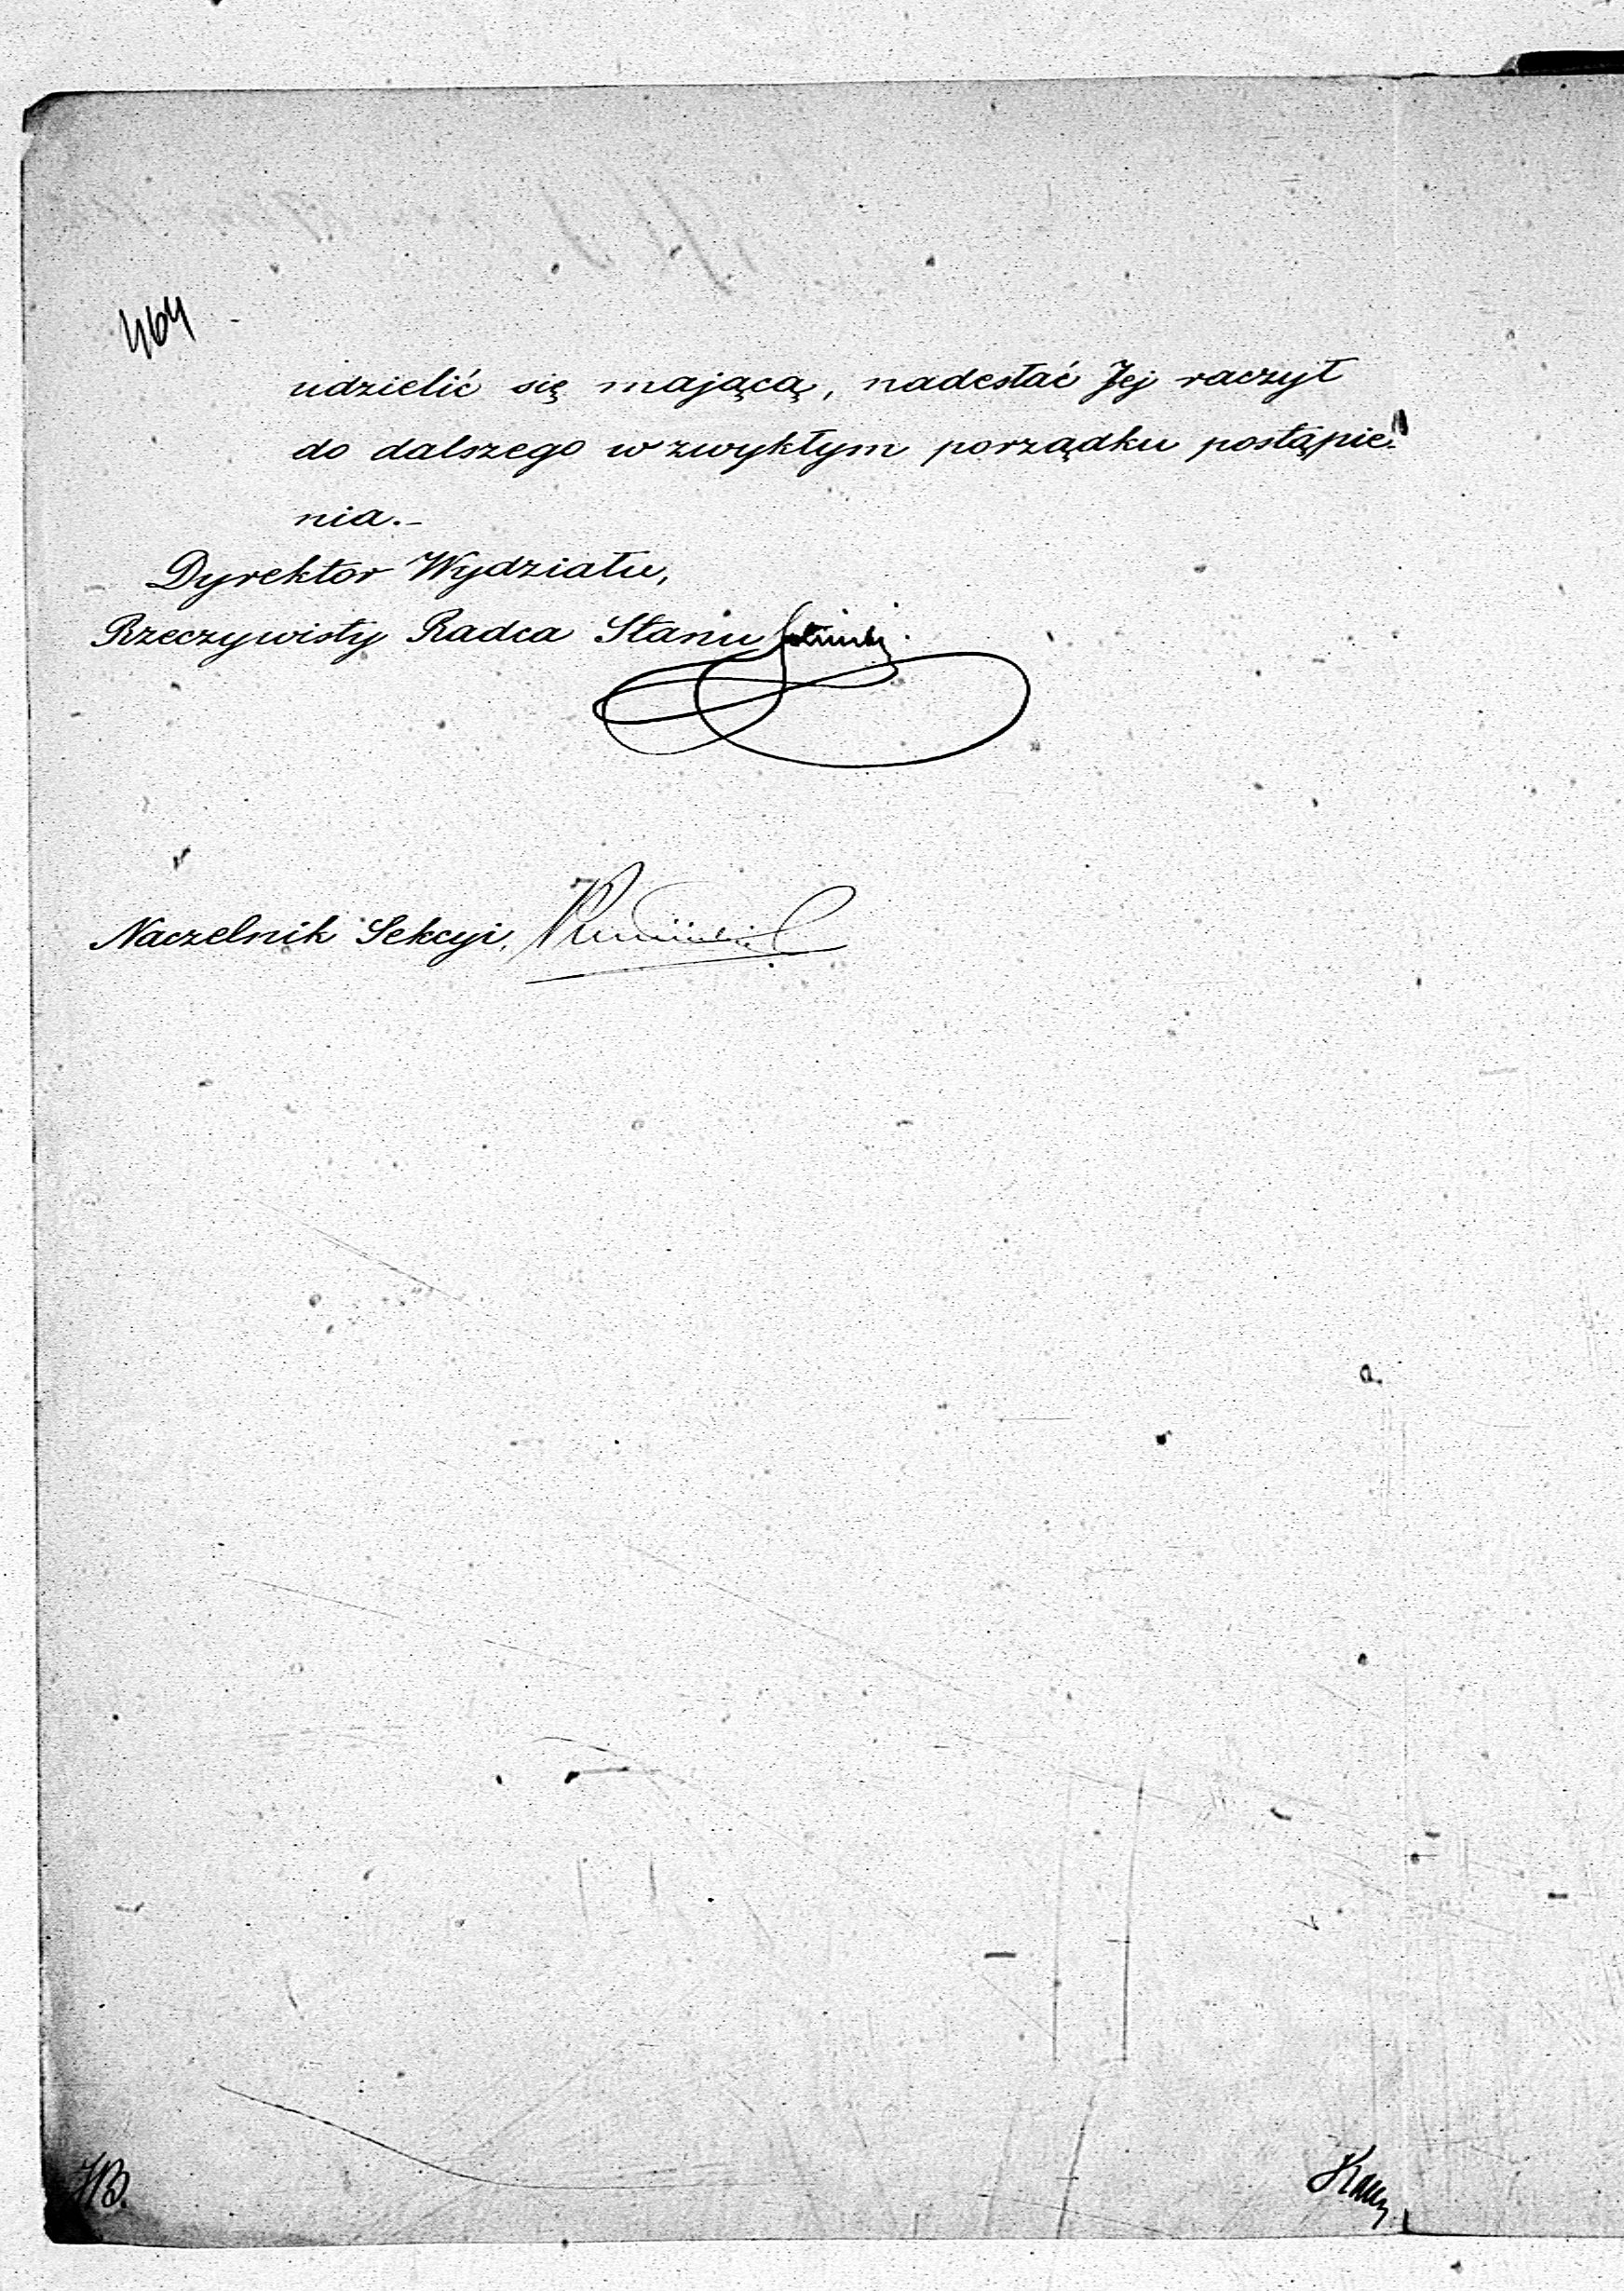 464
udzielić się mającą, nadesłać Jej raczył
do dalszego w zwykłym porządku postąpie-
nia.-
Dyrektor Wydziału,
Rzeczywisty Radca Stanu
Naczelnik Sekcyi,